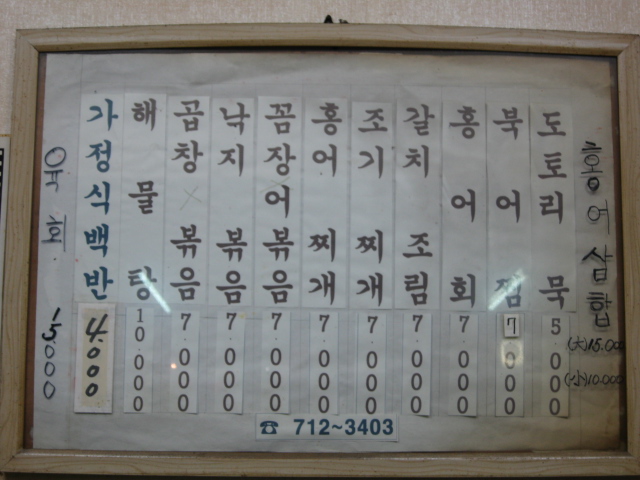 육회. 15000
가정식백반 4.000
해물탕 10.000
곱창볶음 7.000
낙지볶음 7.000
꼼장어볶음 7.000
홍어찌개 7.000
조기찌개 7.000
갈치조림 7.000
홍어회 7.000
북어찜 7.000
도토리묵 5.000
홍어삼합
(大)15.000
(小)10.000
☎ 712~3403